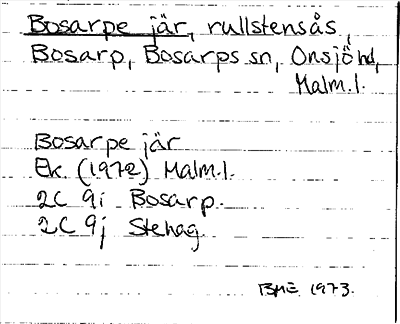 Bosarpe jär, rullstensås,
Bosarp, Bosarps sn, Onsjö hd,
Malm.l.
Bosarpe jär
Ek. (1972) Malm.l.
2C 9i Bosarp.
2C 9j Stehag
BME 1973.